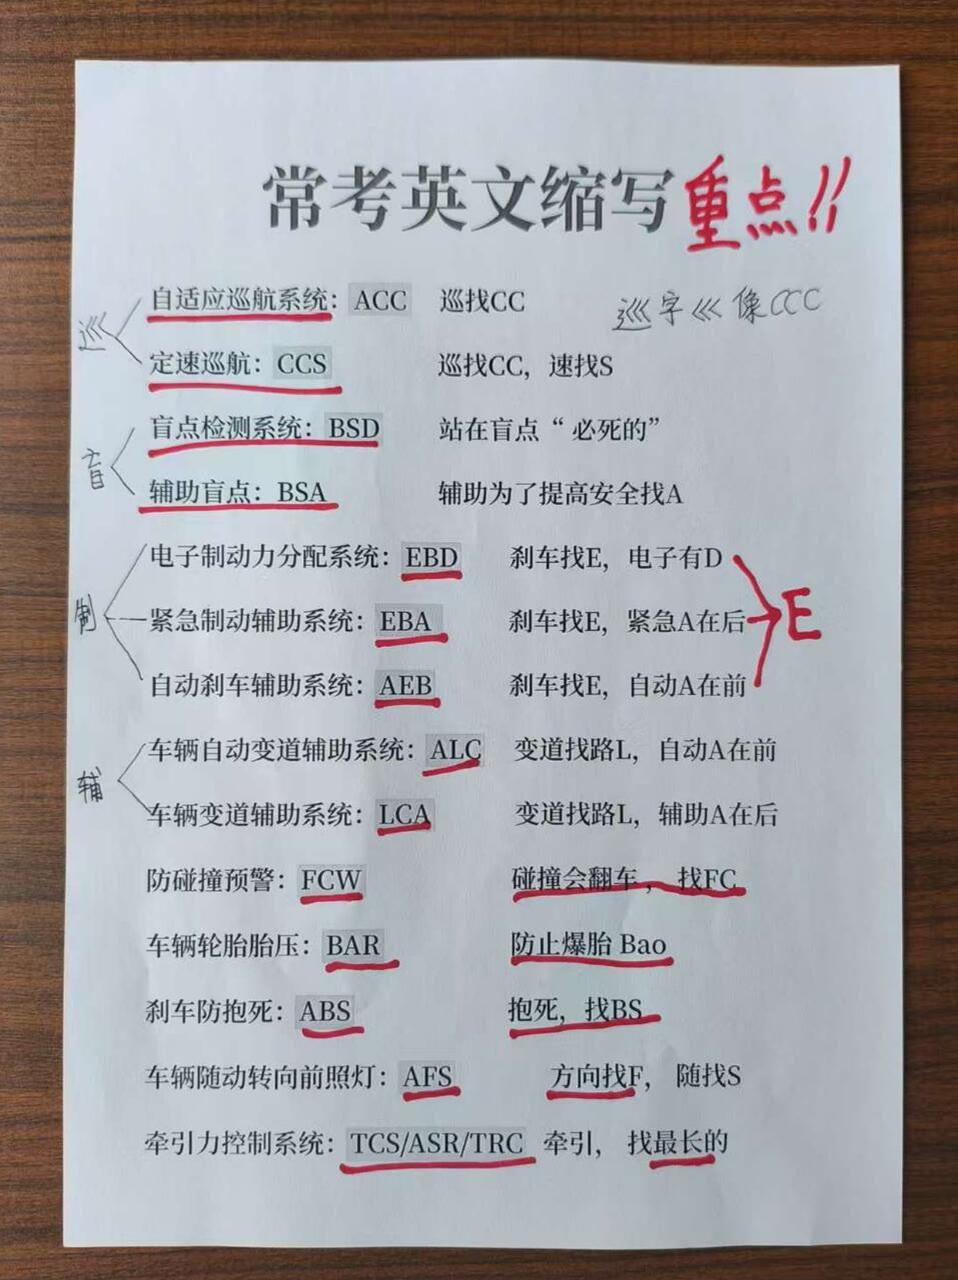 常考英文缩写 重点!!
自适应巡航系统：ACC 巡找CC
巡字巛像CCC
巡
定速巡航：CCS 巡找CC，速找S
盲点检测系统：BSD 站在盲点“ 必死的”
盲
辅助盲点：BSA 辅助为了提高安全找A
电子制动力分配系统：EBD 刹车找E，电子有D
制
紧急制动辅助系统：EBA 刹车找E，紧急A在后
E
自动刹车辅助系统：AEB 刹车找E，自动A在前
车辆自动变道辅助系统：ALC 变道找路L，自动A在前
辅
车辆变道辅助系统：LCA 变道找路L，辅助A在后
防碰撞预警：FCW 碰撞会翻车，找FC
车辆轮胎胎压：BAR 防止爆胎 Bao
刹车防抱死：ABS 抱死，找BS
车辆随动转向前照灯：AFS 方向找F，随找S
牵引力控制系统：TCS/ASR/TRC 牵引，找最长的